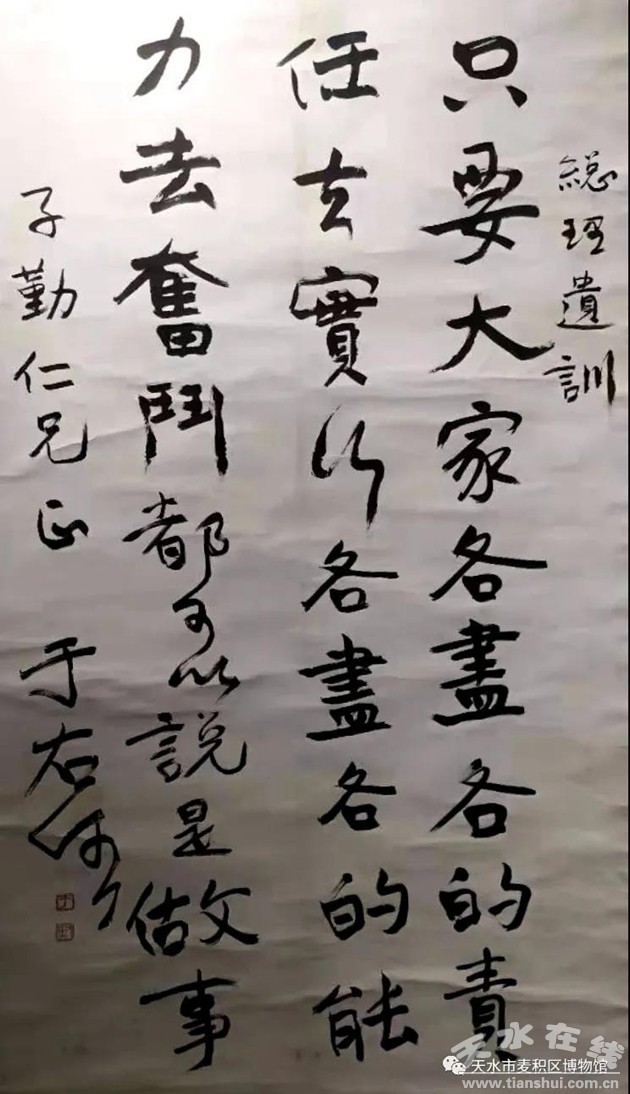 總理遺訓
只要大家各盡各的責
任去實行各盡各的能
力去奮鬥都可以說是做事
子勤仁兄正 于右任
天水在线
天水市麦积区博物馆
www.tianshui.com.cn